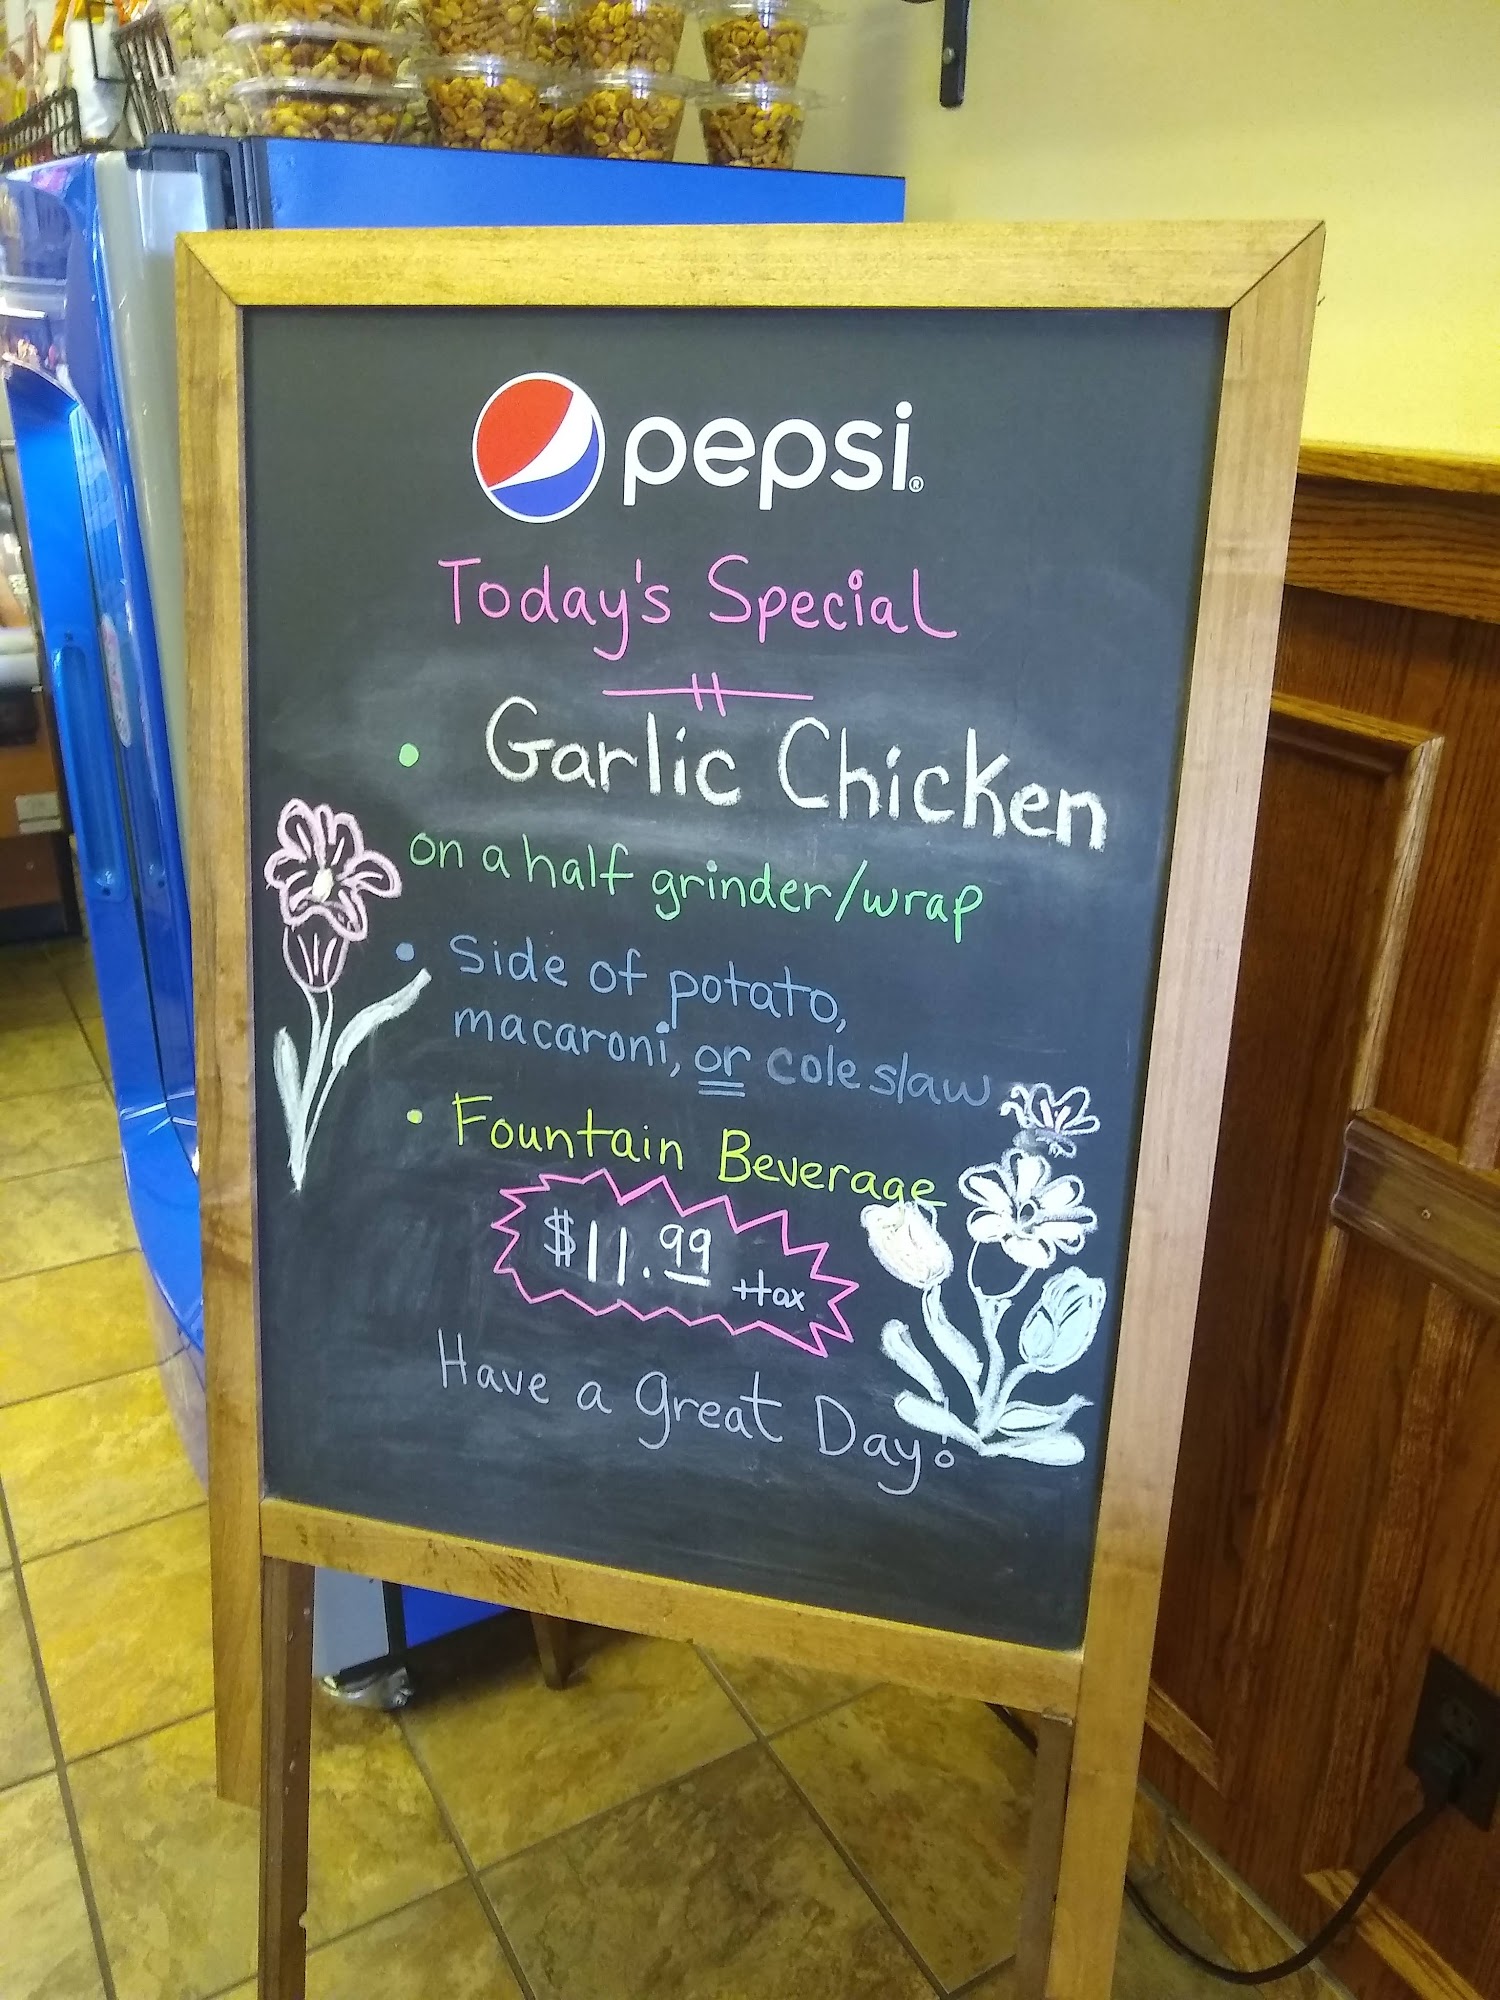 pepsi®
Today's Special
• Garlic Chicken
on a half grinder/wrap
• Side of potato,
macaroni, or cole slaw
• Fountain Beverage
$11.99 +tax
Have a Great Day!